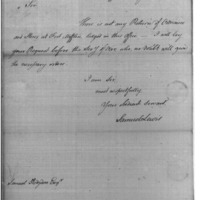 Sir
There is not any Return of Ordnance
and Stores at Fort Mifflin lodged in this office. I will lay
your Request before the Secy of War who no doubt will give
the necessary orders.
I am Sir,
most respectfully,
Your Obedient Servant
Samuel Lewis
Samuel Hodgdon Esqr